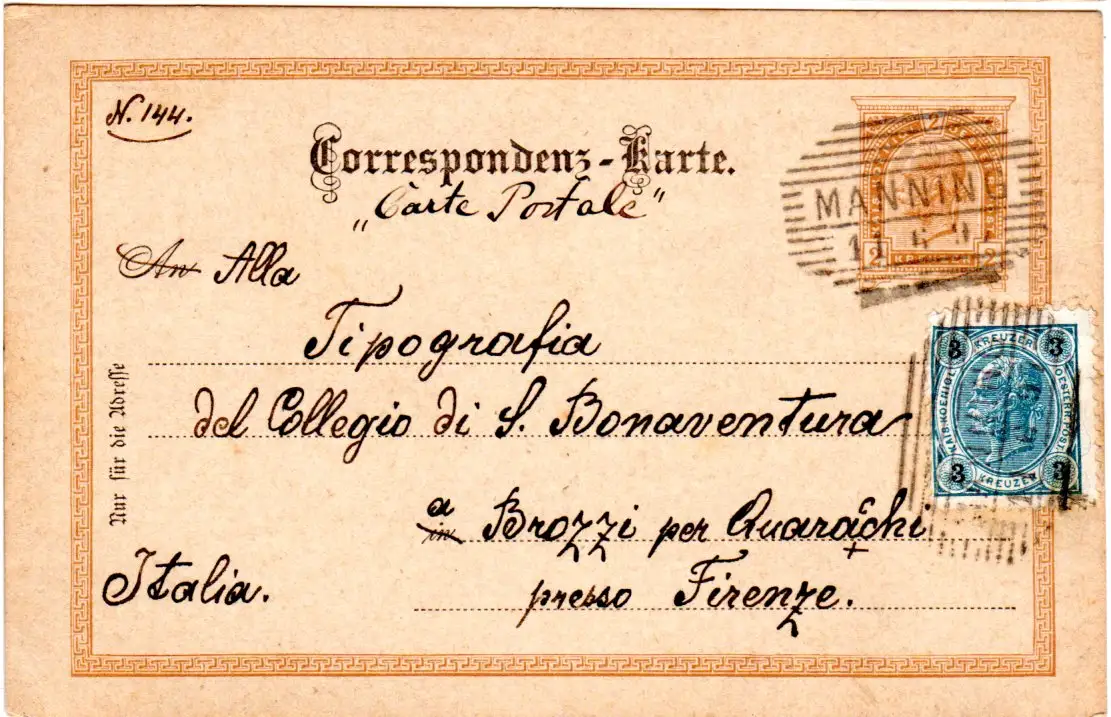 N. 144.
Correspondenz-Karte.
„Carte Postale"
An Alla
Tipografia
del Collegio di S. Bonaventura
a
in Brozzi per Quarachi
Italia.
presso Firenze.
Nur für die Adresse
2
MANNING
2 KREUZER 2
3 KREUZER 3
KAIS. KOENIGL. OESTERR. POST.
3 KREUZER 3